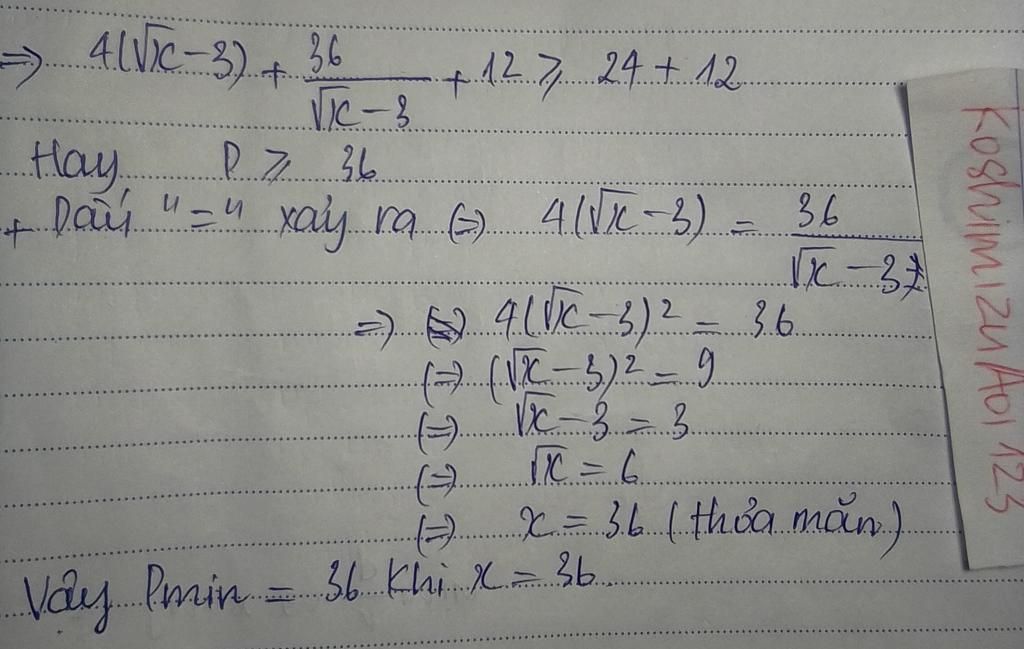 => 4(√x - 3) + 36/(√x - 3) + 12 ≥ 24 + 12
Hay P ≥ 36
+ Dấu "=" xảy ra (=) 4(√x - 3) = 36/(√x - 3)
=) 4(√x - 3)² = 36
(=) (√x - 3)² = 9
(=) √x - 3 = 3
(=) √x = 6
(=) x = 36 (thỏa mãn)
Vậy Pmin = 36 khi x = 36
KoshimizuAoi 123